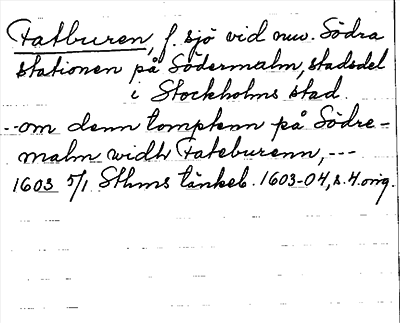 Fatburen, f. sjö vid nuv. Södra
stationen på Södermalm, stadsdel
i Stockholms stad.
--om denn tomptenn på Södre-
malm widh Fateburenn, ---
1603 5/1 Sthms tänkeb. 1603-04, s. 4. orig.